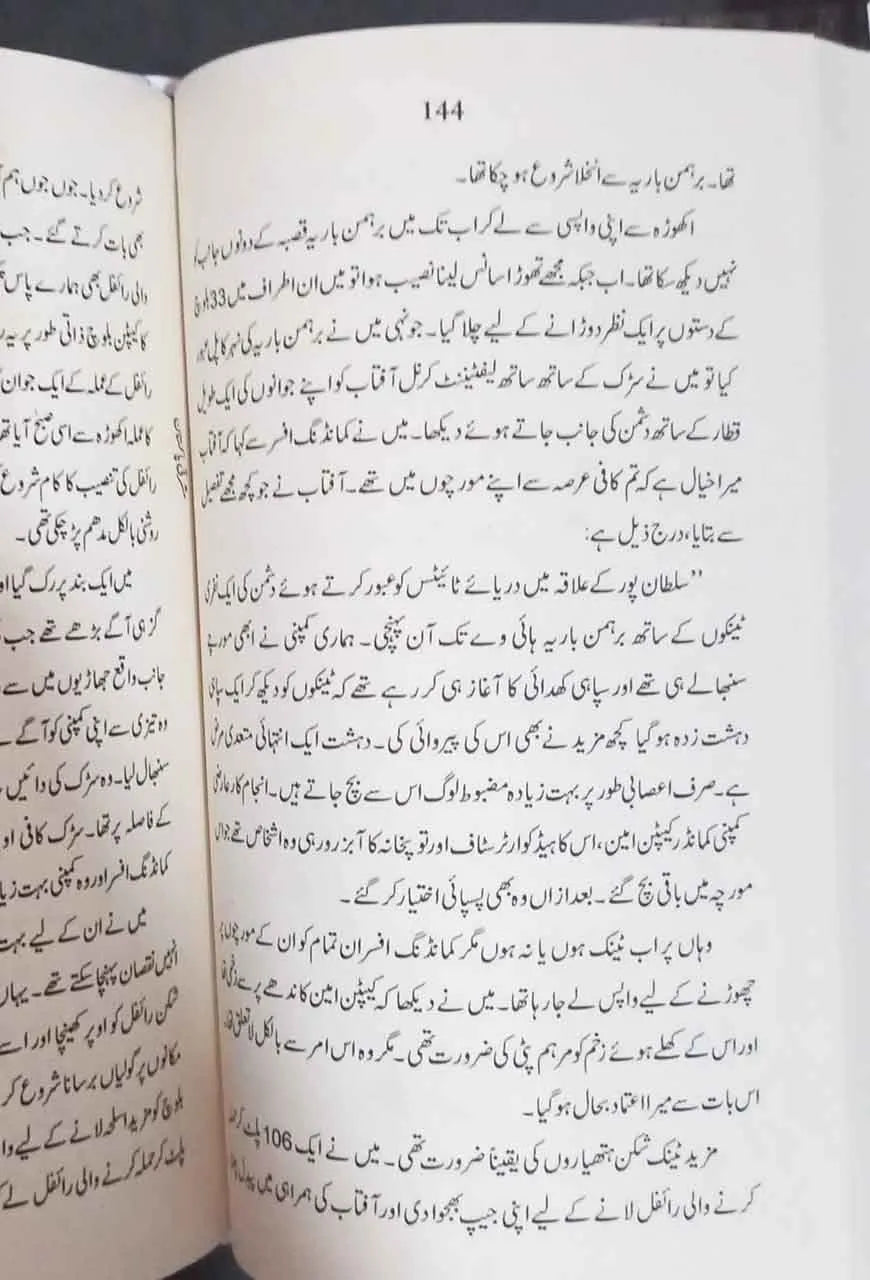 شروع کر دیا۔ جوں جوں ہم
بھی بات کرتے گئے۔ جب
والی رائفل بھی ہمارے پاس
کا کیپٹن بلوچ ذاتی طور پر یہ
رائفل کے عملہ کے ایک جوان
کا عملہ اکھوڑہ سے اسی صبح آیا تھا
رائفل کی تنصیب کا کام شروع
روشنی بالکل مدھم پڑ چکی تھی۔
میں ایک بند پر رک گیا
گز ہی آگے بڑھے تھے جب
جانب واقع جھاڑیوں میں سے
وہ تیزی سے اپنی کمپنی کو آگے
سنبھال لیا۔ وہ سڑک کی دائیں
کے فاصلہ پر تھا۔ سڑک کافی
کمانڈنگ افسر اور وہ کمپنی بہت
میں نے ان کے لیے بہت
انہیں نقصان پہنچا سکتے تھے۔ یہاں
شکن رائفل کو اوپر کھینچا اور اسے
مکانوں پر گولیاں برسانا شروع کر
بلوچ کو مزید اسلحہ لانے کے لیے
پلٹ کر حملہ کرنے والی رائفل لے
144
تھا۔ برہمن باریہ سے انخلا شروع ہو چکا تھا۔
اکھوڑہ سے اپنی واپسی سے لے کر اب تک میں برہمن باریہ قصبہ کے دونوں جانب
نہیں دیکھ سکا تھا۔ اب جبکہ مجھے تھوڑا سانس لینا نصیب ہوا تو میں ان اطراف میں 33 بلوچ
کے دستوں پر ایک نظر دوڑانے کے لیے چلا گیا۔ جونہی میں نے برہمن باریہ کی نہر کا پل عبور
کیا تو میں نے سڑک کے ساتھ ساتھ لیفٹیننٹ کرنل آفتاب کو اپنے جوانوں کی ایک طویل
قطار کے ساتھ دشمن کی جانب جاتے ہوئے دیکھا۔ میں نے کمانڈنگ افسر سے کہا کہ آفتاب
میرا خیال ہے کہ تم کافی عرصہ سے اپنے مورچوں میں تھے۔ آفتاب نے جو کچھ مجھے تفصیل
سے بتایا، درج ذیل ہے:
"سلطان پور کے علاقہ میں دریائے ٹائیٹس کو عبور کرتے ہوئے دشمن کی ایک نفری
ٹینکوں کے ساتھ برہمن باریہ ہائی وے تک آن پہنچی۔ ہماری کمپنی نے ابھی مورچے
سنبھالے ہی تھے اور سپاہی کھدائی کا آغاز ہی کر رہے تھے کہ ٹینکوں کو دیکھ کر ایک سپاہی
دہشت زدہ ہو گیا کچھ مزید نے بھی اس کی پیروائی کی۔ دہشت ایک انتہائی متعدی مرض
ہے۔ صرف اعصابی طور پر بہت زیادہ مضبوط لوگ اس سے بچ جاتے ہیں۔ انجام کار عارضی
کمپنی کمانڈر کیپٹن امین، اس کا ہیڈ کوارٹر سٹاف اور توپخانہ کا آبزرور ہی وہ اشخاص تھے جو اس
مورچہ میں باقی بچ گئے۔ بعد ازاں وہ بھی پسپائی اختیار کر گئے۔
وہاں پر اب ٹینک ہوں یا نہ ہوں مگر کمانڈنگ افسر ان تمام کو ان کے مورچوں
چھوڑنے کے لیے واپس لے جا رہا تھا۔ میں نے دیکھا کہ کیپٹن امین کاندھے پر سے زخمی تھا
اور اس کے کھلے ہوئے زخم کو مرہم پٹی کی ضرورت تھی۔ مگر وہ اس امر سے بالکل لا تعلق تھا۔
اس بات سے میرا اعتماد بحال ہو گیا۔
مزید ٹینک شکن ہتھیاروں کی یقیناً ضرورت تھی۔ میں نے ایک 106 پلٹ کر حملہ
کرنے والی رائفل لانے کے لیے اپنی جیپ بھجوا دی اور آفتاب کی ہمراہی میں پیدل